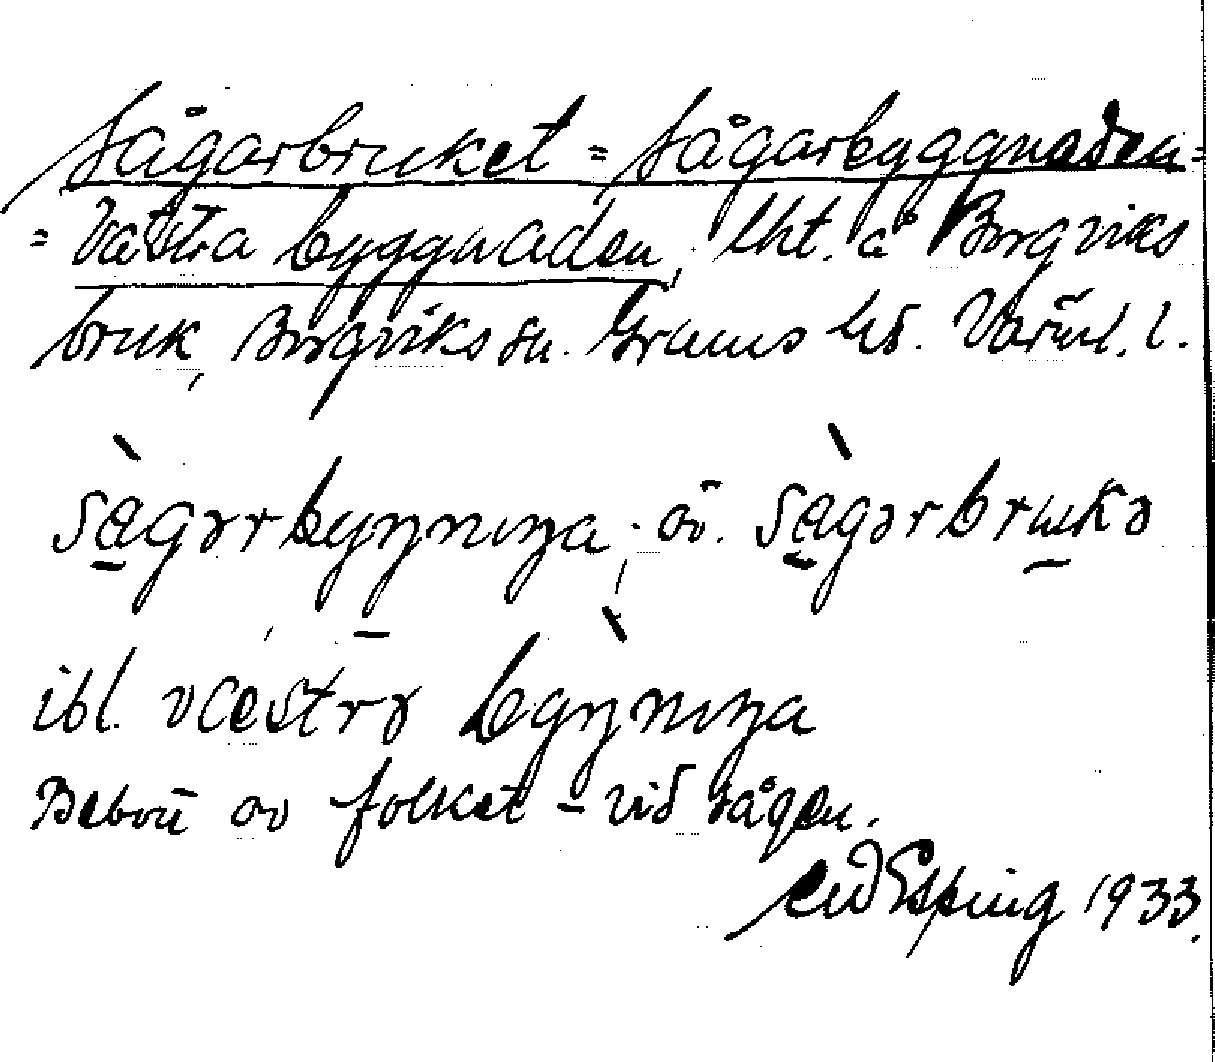 Sågarbruket = Sågarbyggnaden =
= Västra byggnaden, lht. å Borgviks
bruk, Borgviks sn. Grums hd. Värml. l.
sàgərbyŋnıŋa; av. sàgərbrukə
ibl. væstrə bỳŋnıŋa
Bebott av folket - vid sågen.
Esping 1933.